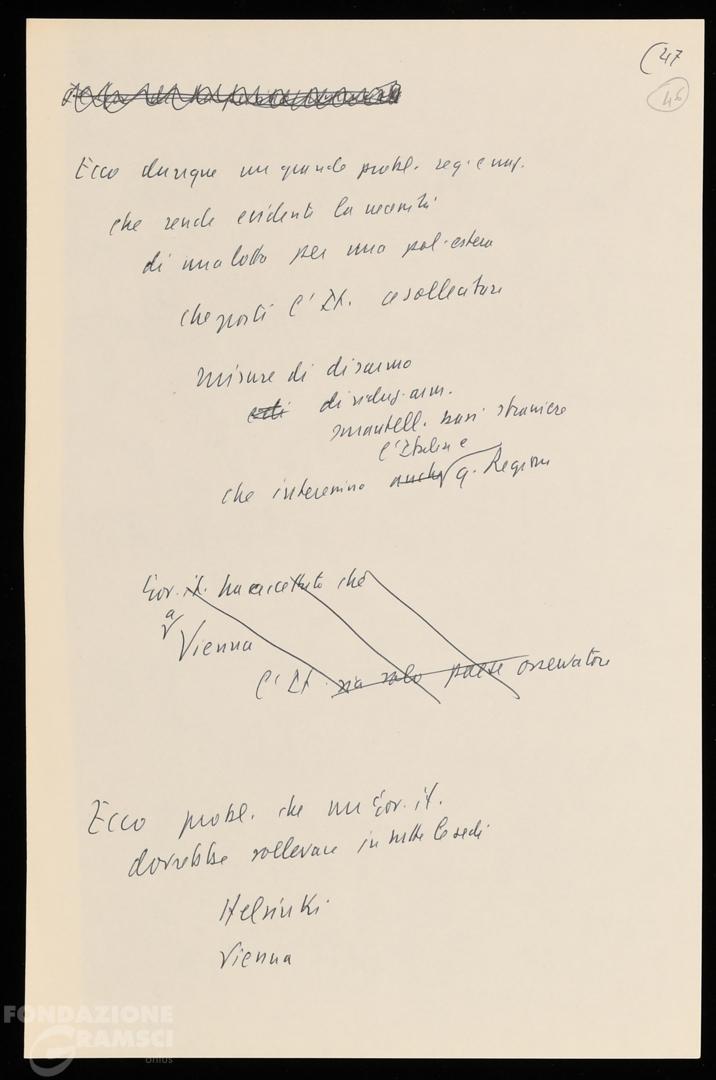 (47
46
Ecco dunque un grande probl. region.
che rende evidente la necessità
di una lotta per una pol. estera
che porti l'It. a sollecitare
misure di disarmo
di riduz. arm.
smantell. basi straniere
l'Italia e
che interessino anche q. Regione
Gov. it. ha accettato che
a
Vienna
l'It. sia solo paese osservatore
Ecco probl. che un Gov. it.
dovrebbe sollevare in tutte le sedi
Helsinki
Vienna
FONDAZIONE
GRAMSCI
onlus